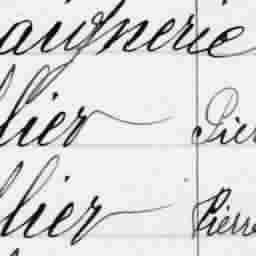 aignerie
llier Pier
llier Pierre